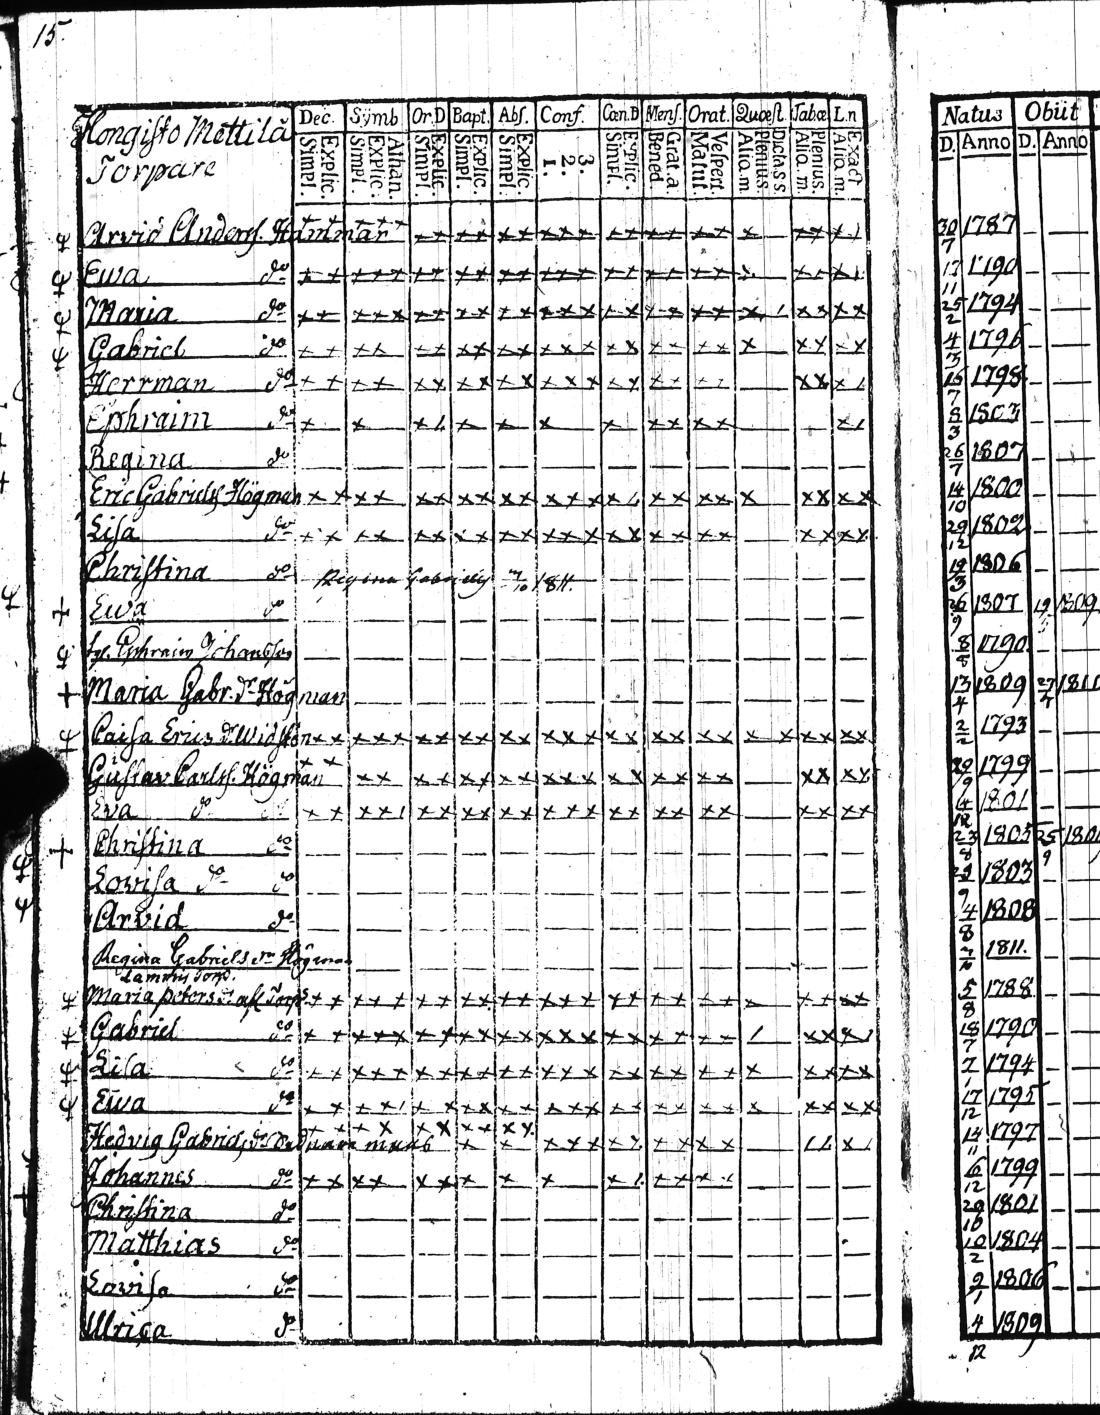 15.
Hongisto Mettilä
Torpare
Dec. Symb Or.D Bapt. Abs. Conf. Cœn.D Mens. Orat. Quæst. Tabœ L.n
Simpl. Explic. Simpl. Explic. Athan. Simpl. Explic. Simpl. Explic. Simpl. Explic. 1. 2. 3. Simpl. Explic. Bened. Grat.a Matut. Vespert. Aliq.m. Plenius. Dicta s.s. Aliq.m. Plenius. Aliq.m. Exact
Natus Obiit
D. Anno D. Anno
Arvid Anderss. Hammar 30/7 1787
Ewa do 17/11 1790
Maria do 25/2 1794
Gabriel do 4/3 1796
Herrman do 15/7 1798
Ephraim do 8/3 1803
Regina do 26/7 1807
Eric Gabrielss Högman 14/10 1800
Lisa do 29/12 1802
Christina do 19/3 1806
Regina Gabriels 7/10 1811.
Ewa do 26/9 1807 1809
Ephraim Johansson 8/8 1790
Maria Gabr. dr Högman 13/4 1809 27/4 1810
Caisa Erics dr 2/2 1793
Gustav Carlss. Högman 1799
Eva do 4/12 1801
Christina do 23/8 1805 25/9
Lovisa do do 1803
Arvid do 4/8 1808
Regina Gabriels dr Högman 7/10 1811.
Maria Peters 5/8 1788
Gabriel do 18/7 1790
Lisa do 2/1 1794
Ewa do 17/12 1795
Hedvig Gabriels dr 14/11 1797
Johannes do 16/12 1799
Christina do 20/10 1801
Matthias do 10/2 1804
Lovisa do 9/1 1806
Ulrica do 4/12 1809